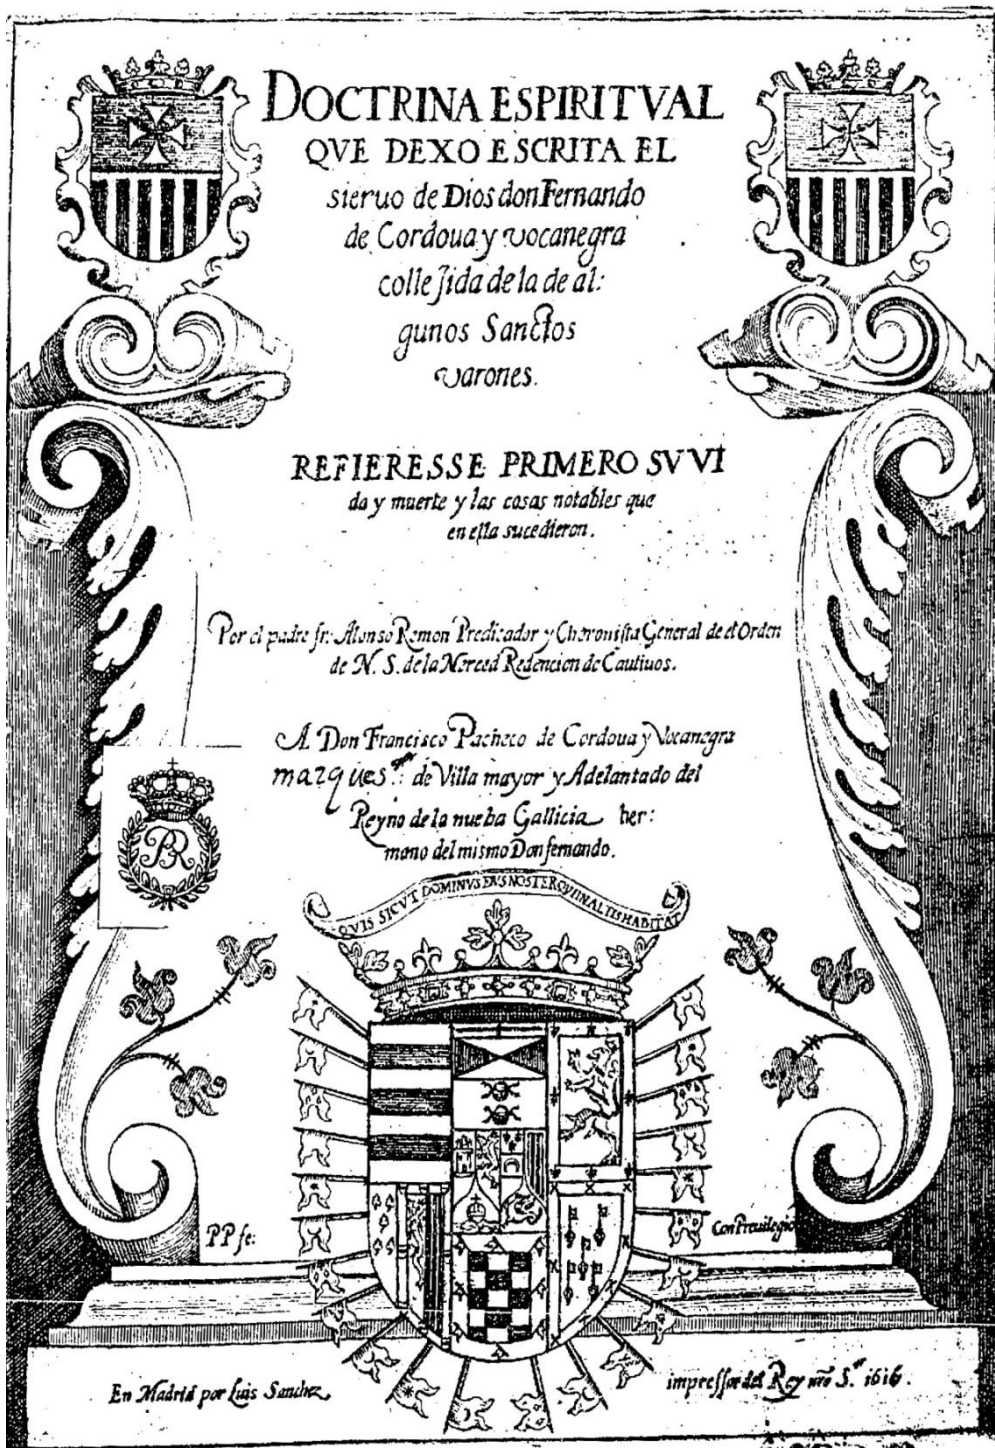 DOCTRINA ESPIRITVAL
QVE DEXO ESCRITA EL
sieruo de Dios don Fernando
de Cordoua y vocanegra
collejida de la de al:
gunos Sanctos
varones.
REFIERESSE PRIMERO SV VI
da y muerte y las cosas notables que
en ella sucedieron.
Por el padre fr: Alonso Remon Predicador y Choronista General de el Orden
de N. S. de la Merced Redencion de Cautiuos.
A Don Francisco Pacheco de Cordoua y Vocanegra
marques de Villa mayor y Adelantado del
Reyno de la nueba Gallicia her:
mano del mismo Don fernando.
QVIS SICVT DOMINVS ENS NOSTER QVI IN ALTIS HABITAT
PP fe:
Con Preuilegio
En Madrid por Luis Sanchez impressor del Rey nro S.or 1616.